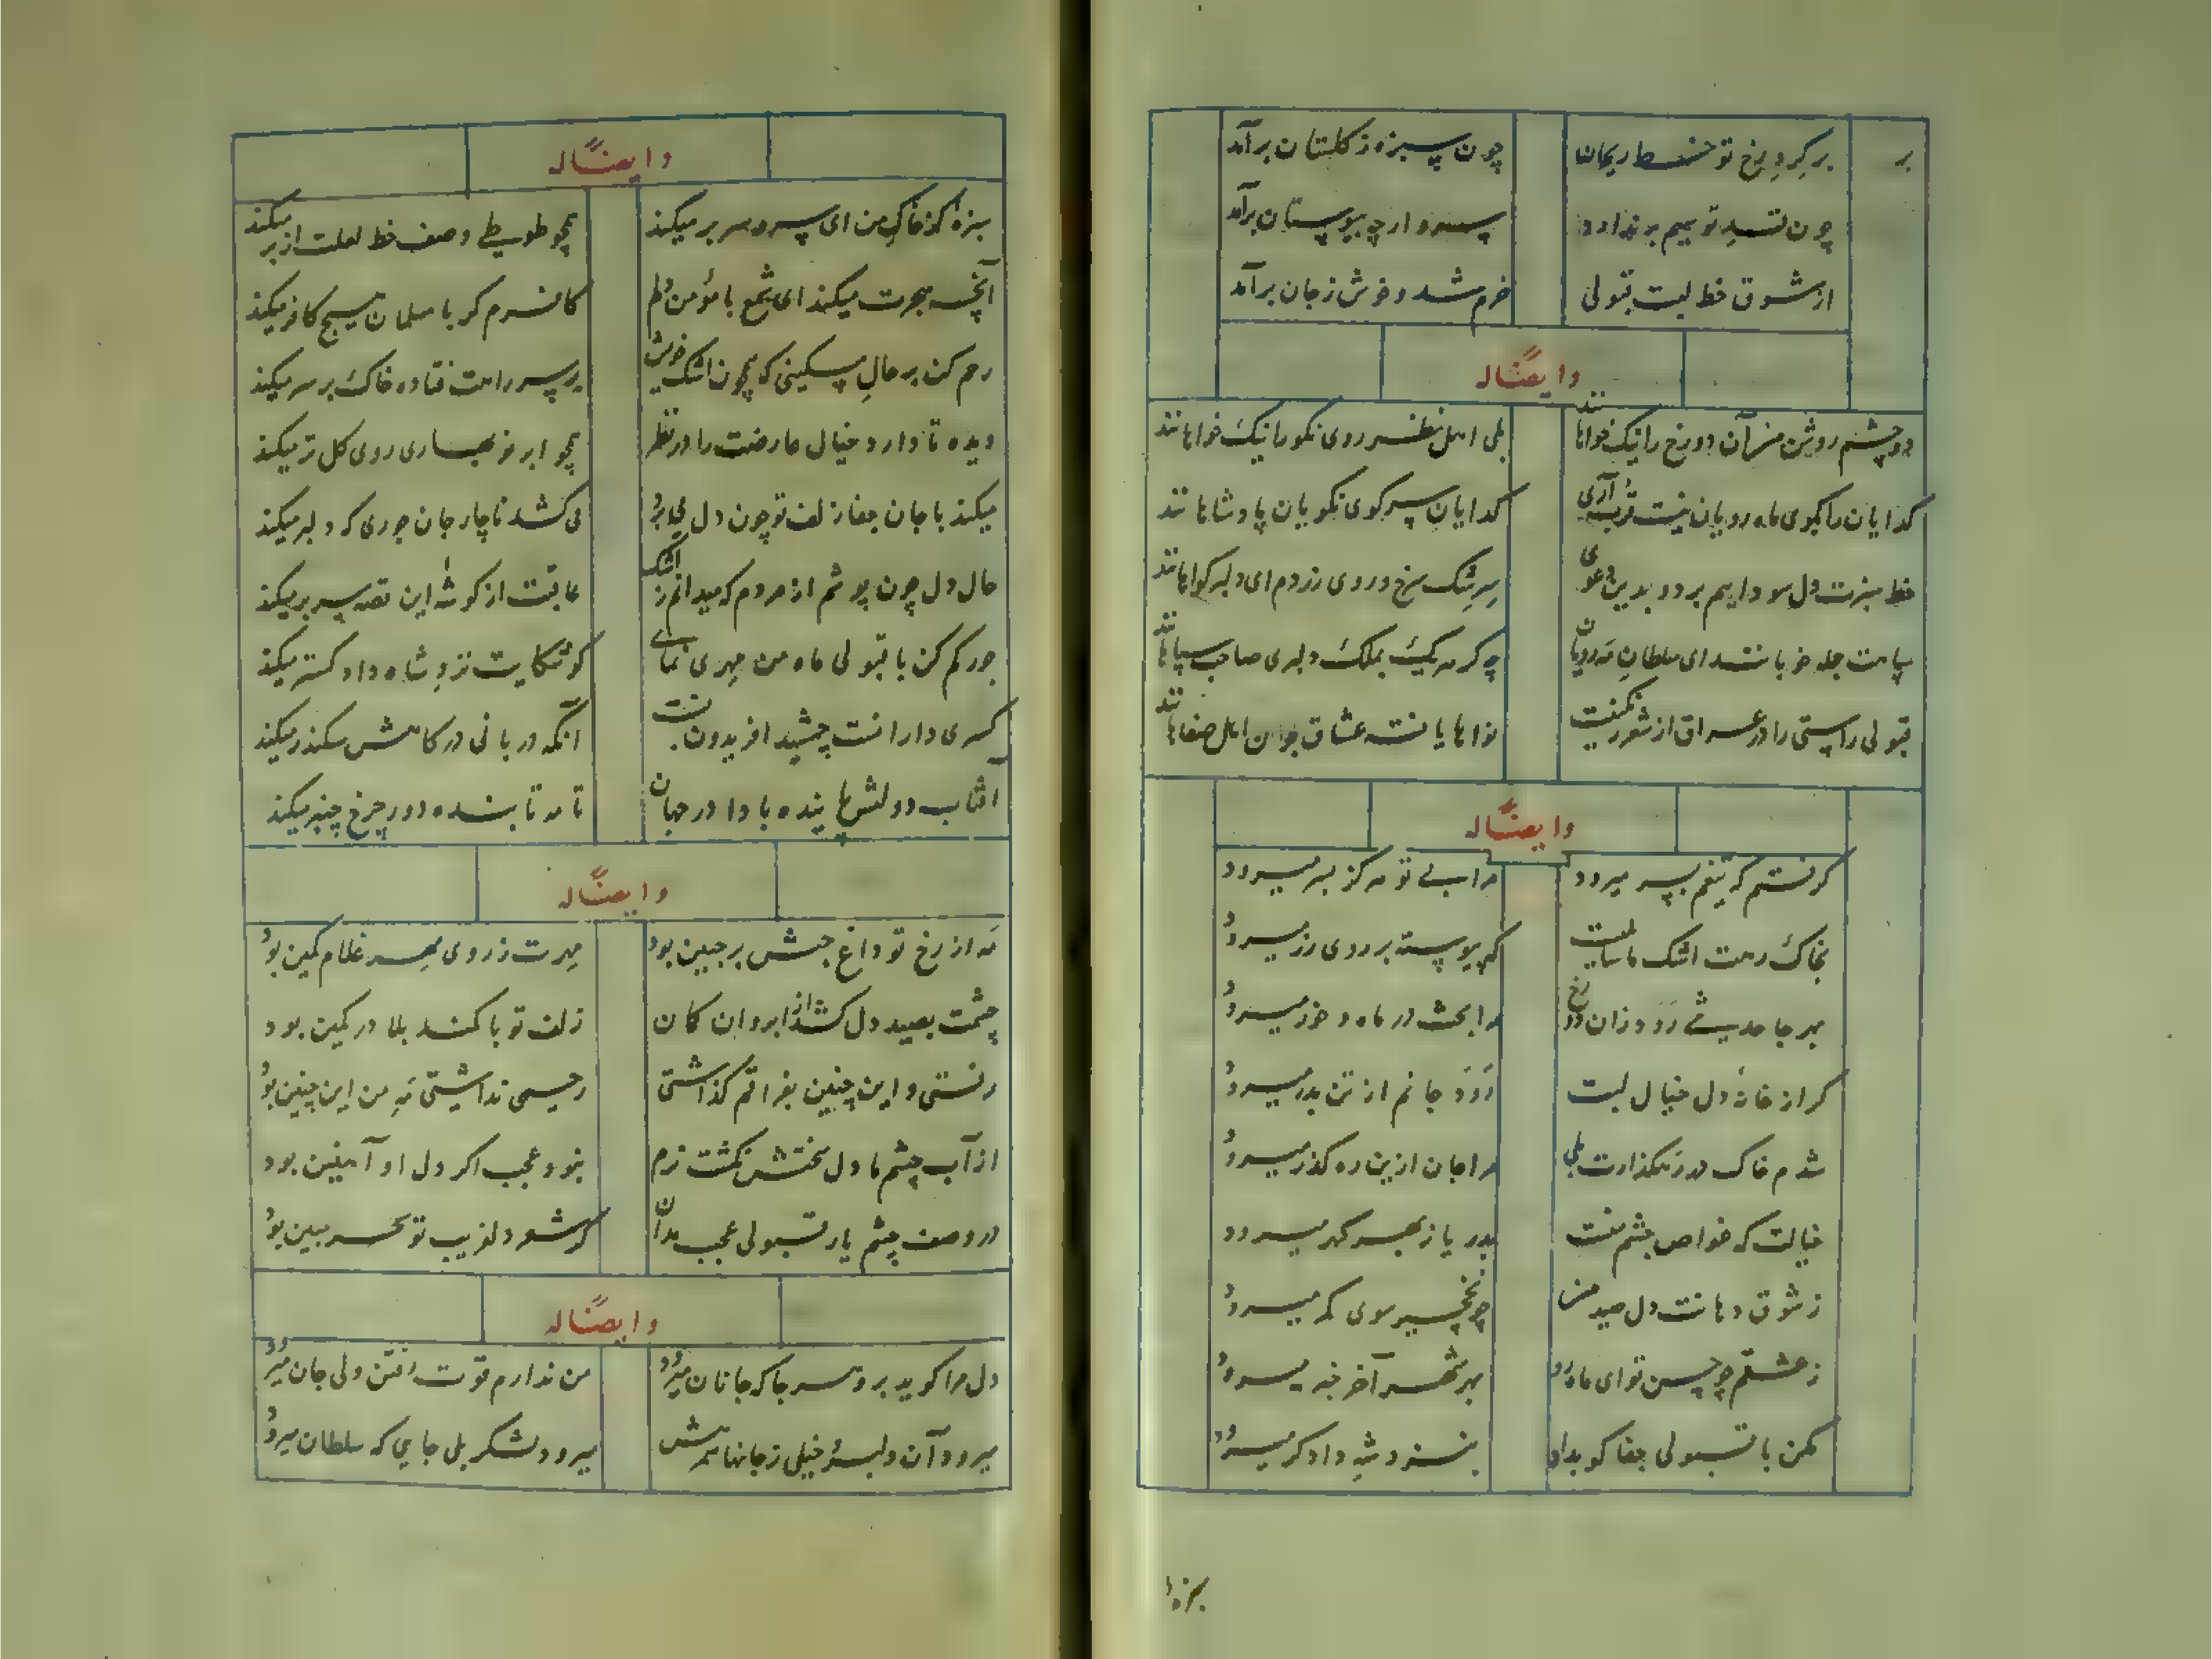 بر گرد رخ تو خط ریحان
چون سبزه ز گلستان برآمد
چون قد تو سیم بر ندارد
سرو ار چه ببوستان برآمد
از شوق خط لبت قبولی
خرم شد و خوش ز جان برآمد
وایضًا له
دو چشم روشن من آن دو رخ را نیک خواهانند
بلی اهل نظر روی نکو را نیک خواهانند
کدایان را بکوی ماه رویان نیست قرب آری
کدایان سر کوی نکویان پادشاهانند
خط سبزت دل سودایم برد و بدین دعوی
سرشک سرخ و روی زردم ای دلبر کواهانند
سپاهت جمله خوبانند ای سلطان مه رویان
چو کر مه یک بیک بملک دلبری صاحب سپاهانند
قبولی راستی را در عراق از شعر رنگینت
نواها یافته عشاق چون اهل صفاهانند
وایضًا له
کرفتم که تیغم بسر میرود
مرا بی تو هرکز بسر میرود
بخاک رهت اشک ما سایلیست
که پیوسته بر روی زر میرود
بهر جا حدیثی رود زان دو رخ
مرا بحث در ماه و خور میرود
کر از خانهٔ دل خیال لبت
رود جانم از تن بدر میرود
شدم خاک در رهکذارت بلی
مرا جان ازین ره کذر میرود
خیالت که غواص چشم منست
بدریا ز بهر کهر میرود
ز شوق دهانت دل صید من
چو نخچیر سوی کمر میرود
ز عشقم چو حسن تو ای ماه رو
بهر شهر آخر خبر میرود
مکن با قبولی جفا کو بداد
بنزد شه دادکر میرود
سبزهٔ
وایضًا له
سبزهٔ کز خاک من ای سرو سر بر میکند
همچو طوطی وصف خط لعلت از بر میکند
آنچه هجرت میکند ای شمع با مؤمن دلم
کافرم کر با مسلمان هیچ کافر میکند
رحم کن بر حال مسکینی که همچون اشک خویش
بر سر راهت فتاده خاک بر سر میکند
دیده تا دارد خیال عارضت را در نظر
همچو ابر نوبهاری روی کل تر میکند
میکند با جان جفا زلف تو چون دل می برد
می کشد ناچار جان جوری که دلبر میکند
حال دل چون پوشم از مردم که میدانم ز اشک
عاقبت از کوشهٔ این قصه سر بر میکند
جور کم کن با قبولی ماه من مهری نمای
کو شکایت نزد شاه دادکستر میکند
کسری دارا نشست جمشید افریدون
آنکه دربانی درکاهش سکندر میکند
آفتاب دولتش پاینده بادا در جهان
تا مه تابنده دور چرخ چنبر میکند
وایضًا له
مه از رخ تو داغ حبش بر جبین بود
مهرت ز روی مهر غلام کمین بود
چشمت بصید دل کشد از ابروان کمان
زلف تو با کمند بلا در کمین بود
رفتی و این چنین بفراقم کذاشتی
رحمی نداشتی مه من این چنین بود
از آب چشم ما دل سختش نکشت نرم
نبود عجب اکر دل او آهنین بود
در وصف چشم یار قبولی عجب مدان
کر شعر دلفریب تو سحر مبین بود
وایضًا له
دل مرا کوید برو هر جا که جانان میرود
من ندارم قوت رفتن ولی جان میرود
میرود آن دلبر و خیلی ز جانها همرهش
میرود لشکر بلی جایی که سلطان میرود